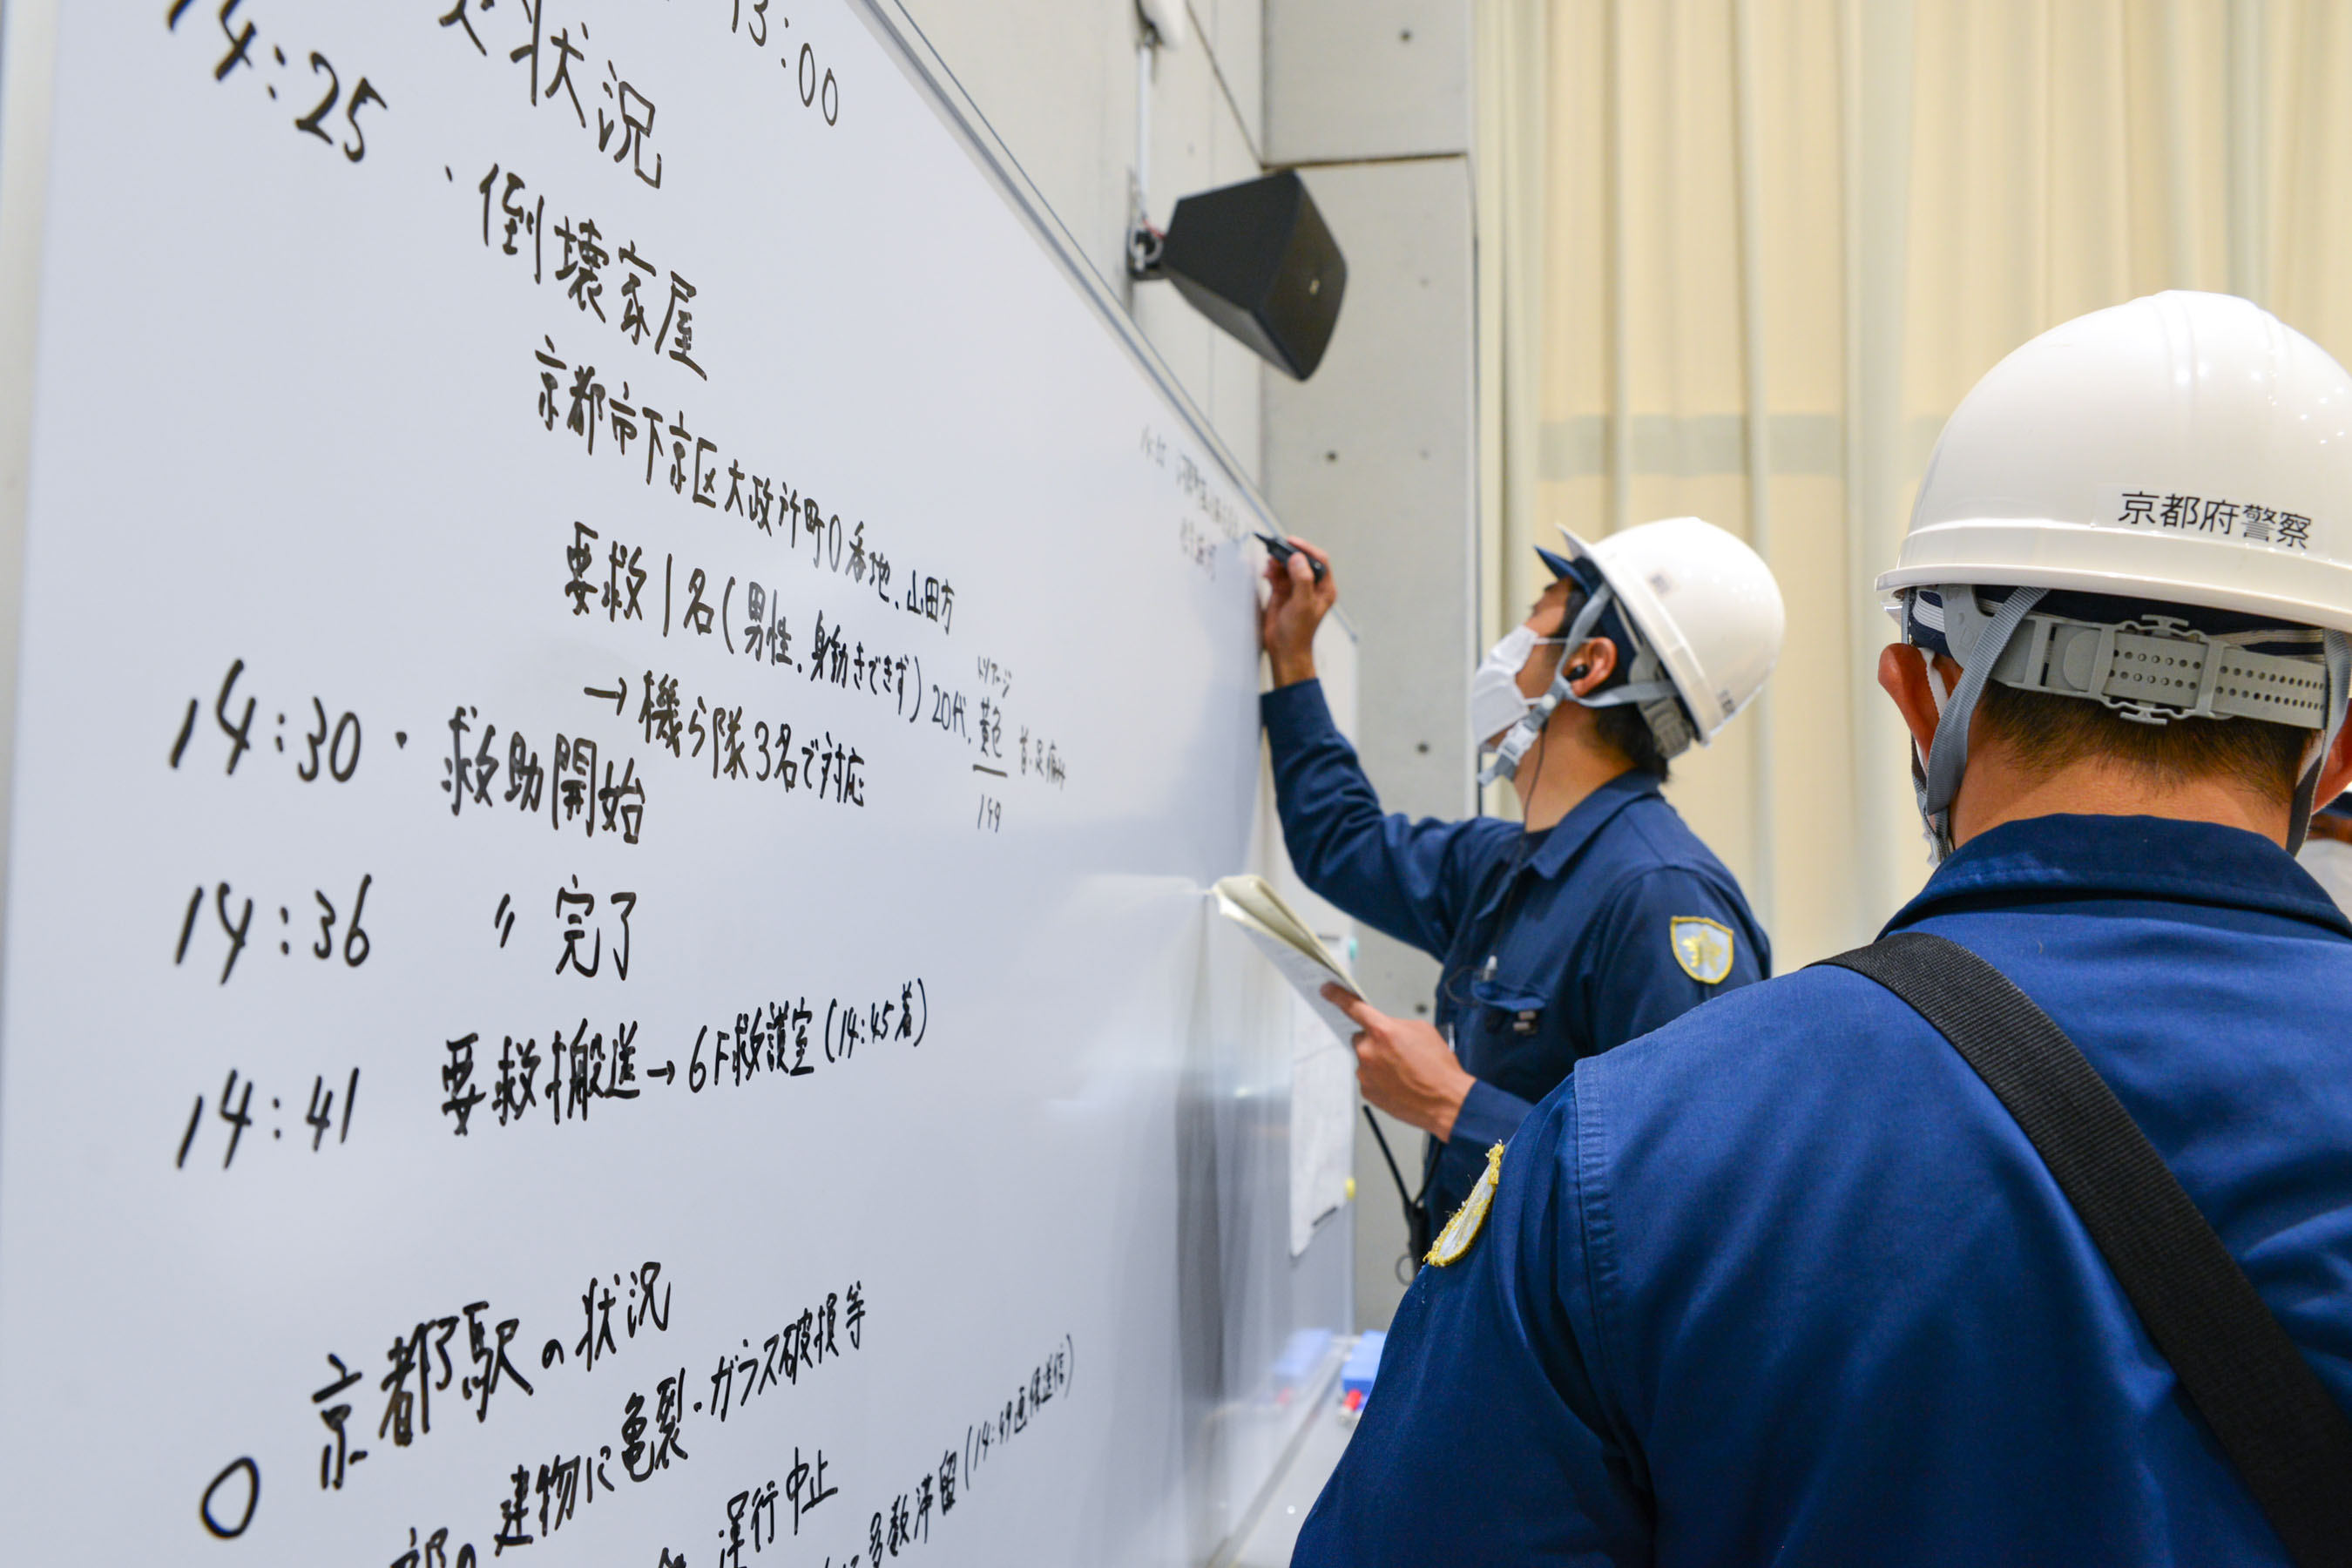 状況
13:00
14:25
・倒壊家屋
京都市下京区大政所町0番地、山田方
要救1名(男性、身動きできず)20代、黄色
トリアージ
首、足痛み
→機ら隊3名で対応
14:30・救助開始
14:36 〃 完了
14:41 要救搬送→6F救護室(14:45着)
○京都駅の状況
建物に亀裂・ガラス破損等
運行中止
多数滞留(14:49画像送信)
京都府警察